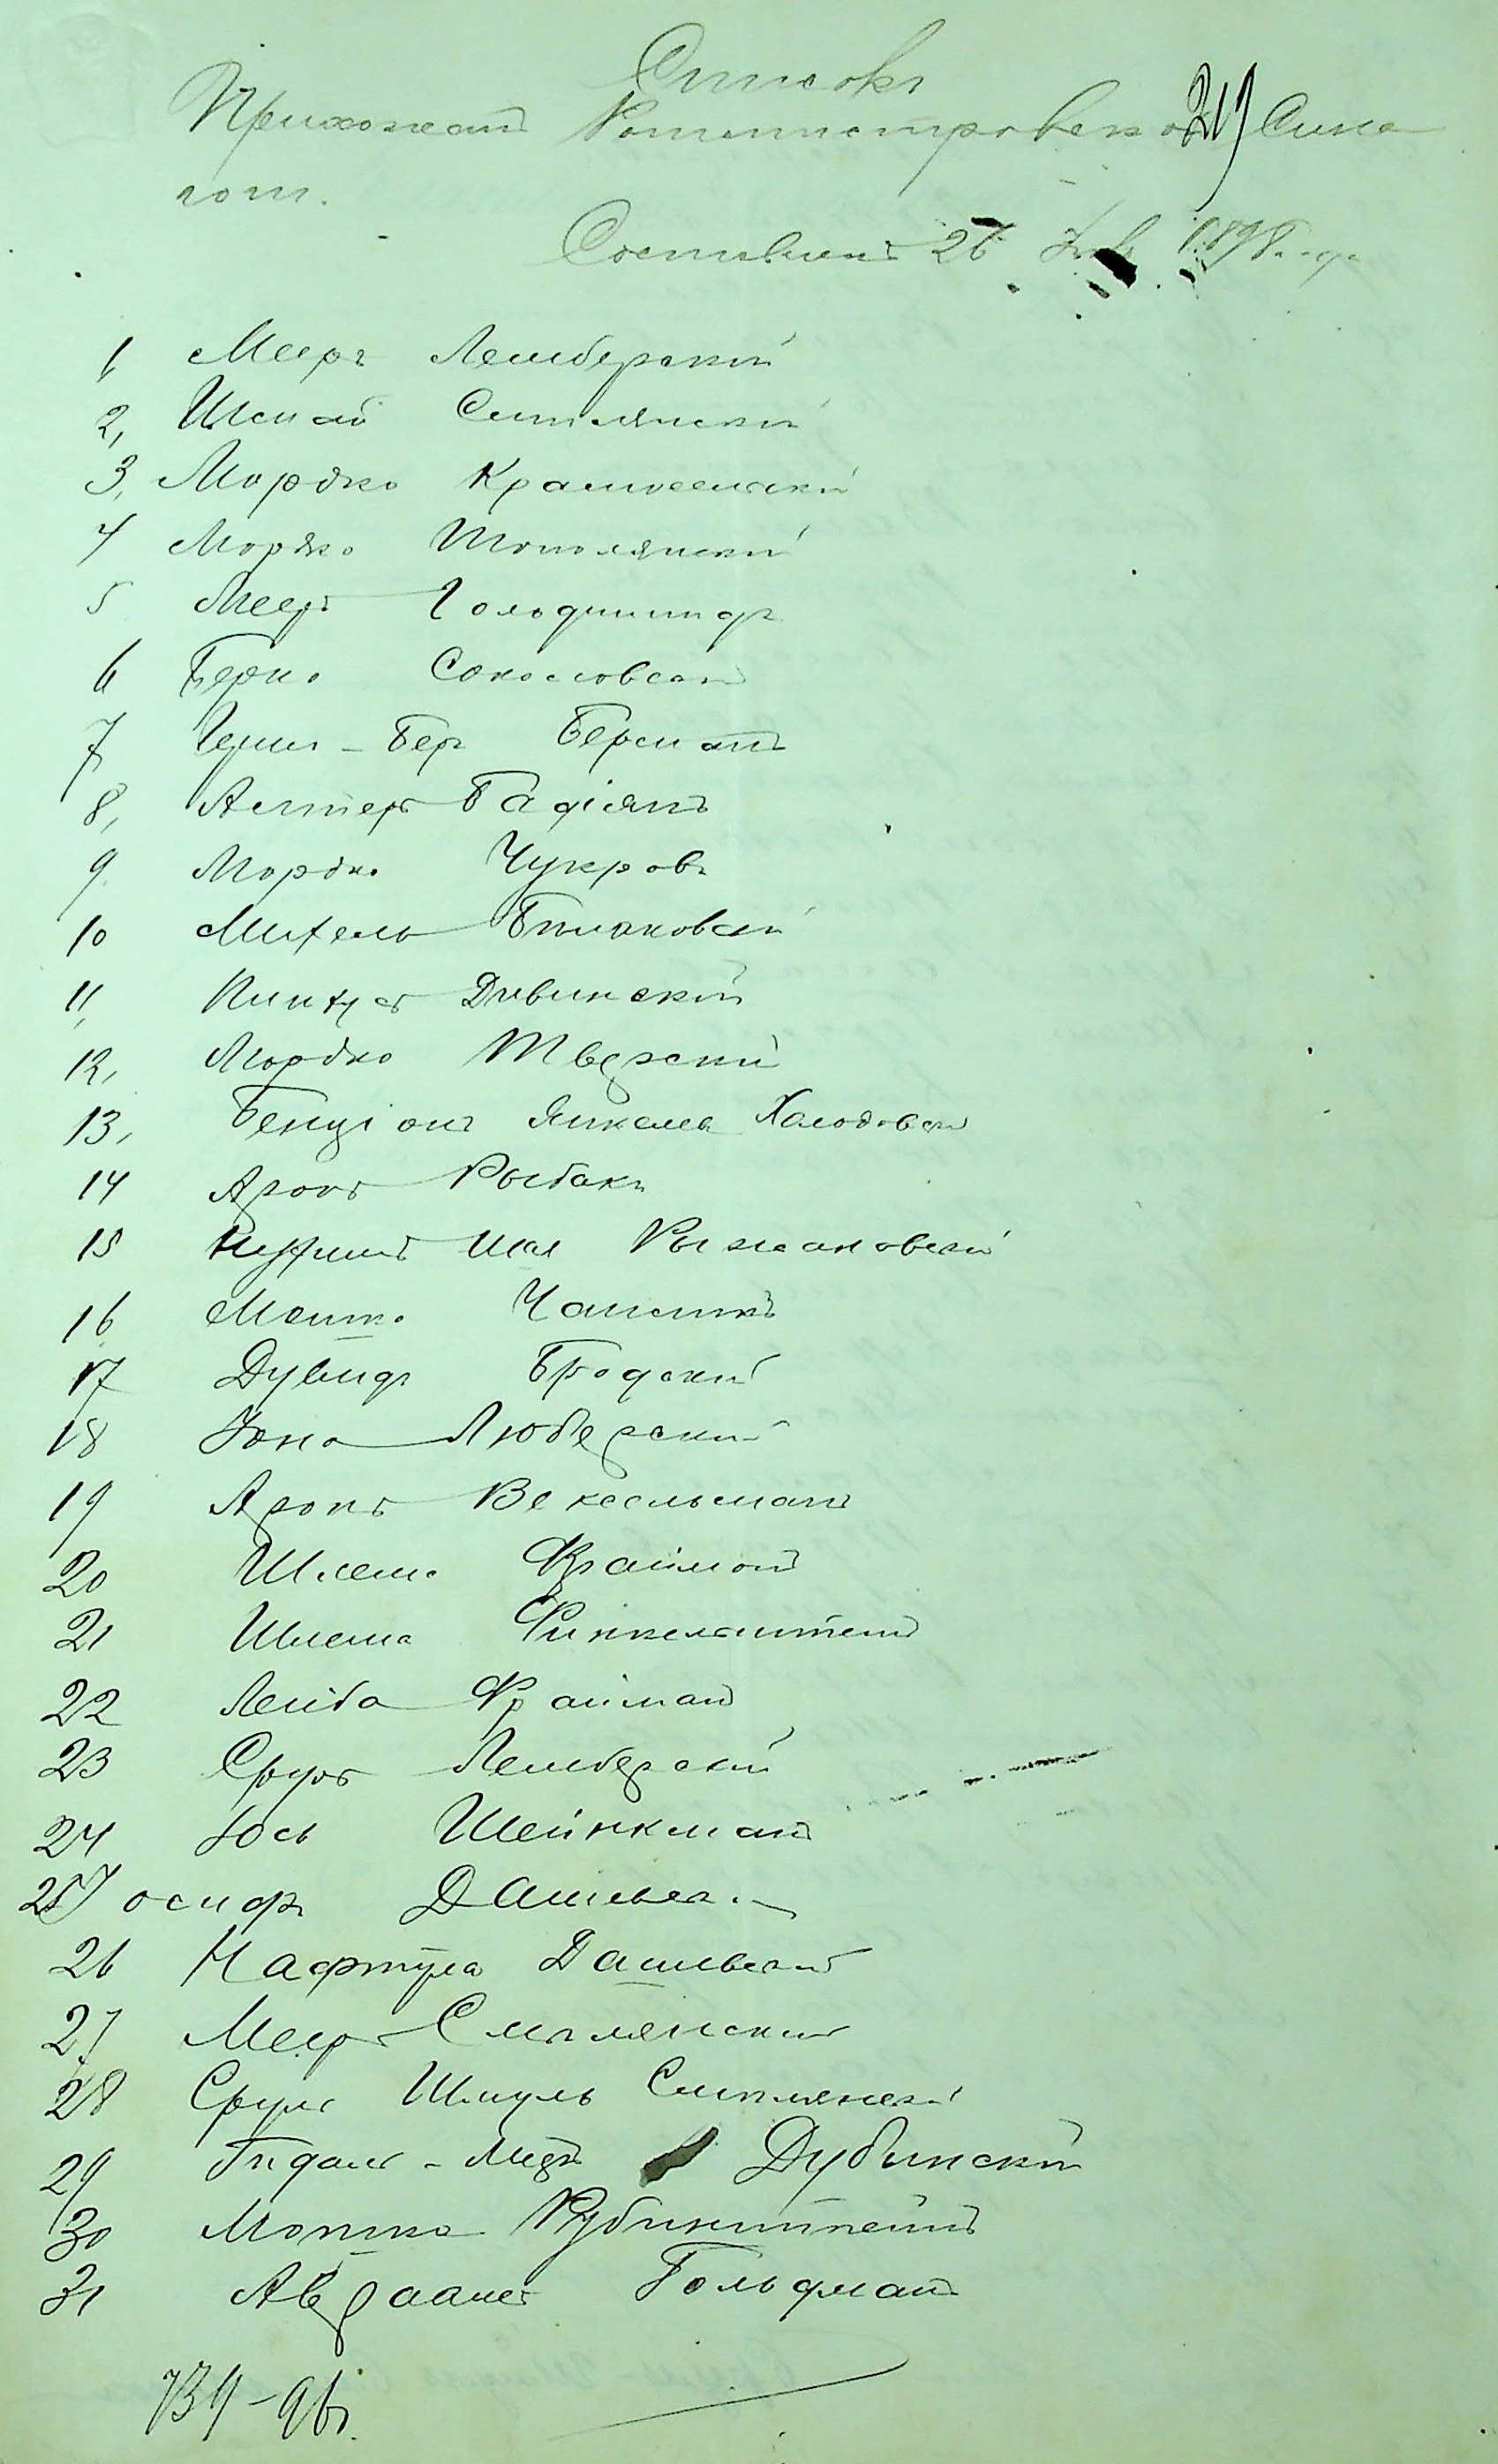 Списокъ
Прихожанъ Ротмистровской Сина-
гоги.
219
Составленъ 26 1898 года
1, Мееръ Лемберскій
2, Шмай Смилянскій
3, Мордко
4 Мордко Тополянскій
5 Мееръ
6 Берко Соколовскій
7, Гершъ-Беръ Берманъ
8, Алтеръ
9. Мордко
10 Михель
11, Пинхусъ Дивинскій
12, Мордко Тверскій
13, Бенціонъ Янкель Холодовскій
14 Аронъ Рыбакъ
15 Нухимъ Шая Рыжановскій
16 Мошко
17 Дувидъ Бродскій
18 Іона Люберскій
19 Аронъ Вексельманъ
20 Шлема Фрайманъ
21 Шлема Финкельштейнъ
22 Лейба Фрайманъ
23 Сруль Лемберскій
24 Іось Шейнкманъ
25 Іосифъ Дашевскій
26 Нафтула Дашевскій
27 Мееръ Смилянскій
28 Сруль Шмуль Смилянскій
29 Гидаль - Дубинскій
30 Мошко Рубинштейнъ
31 Авраамъ Гольдманъ
739-96г.